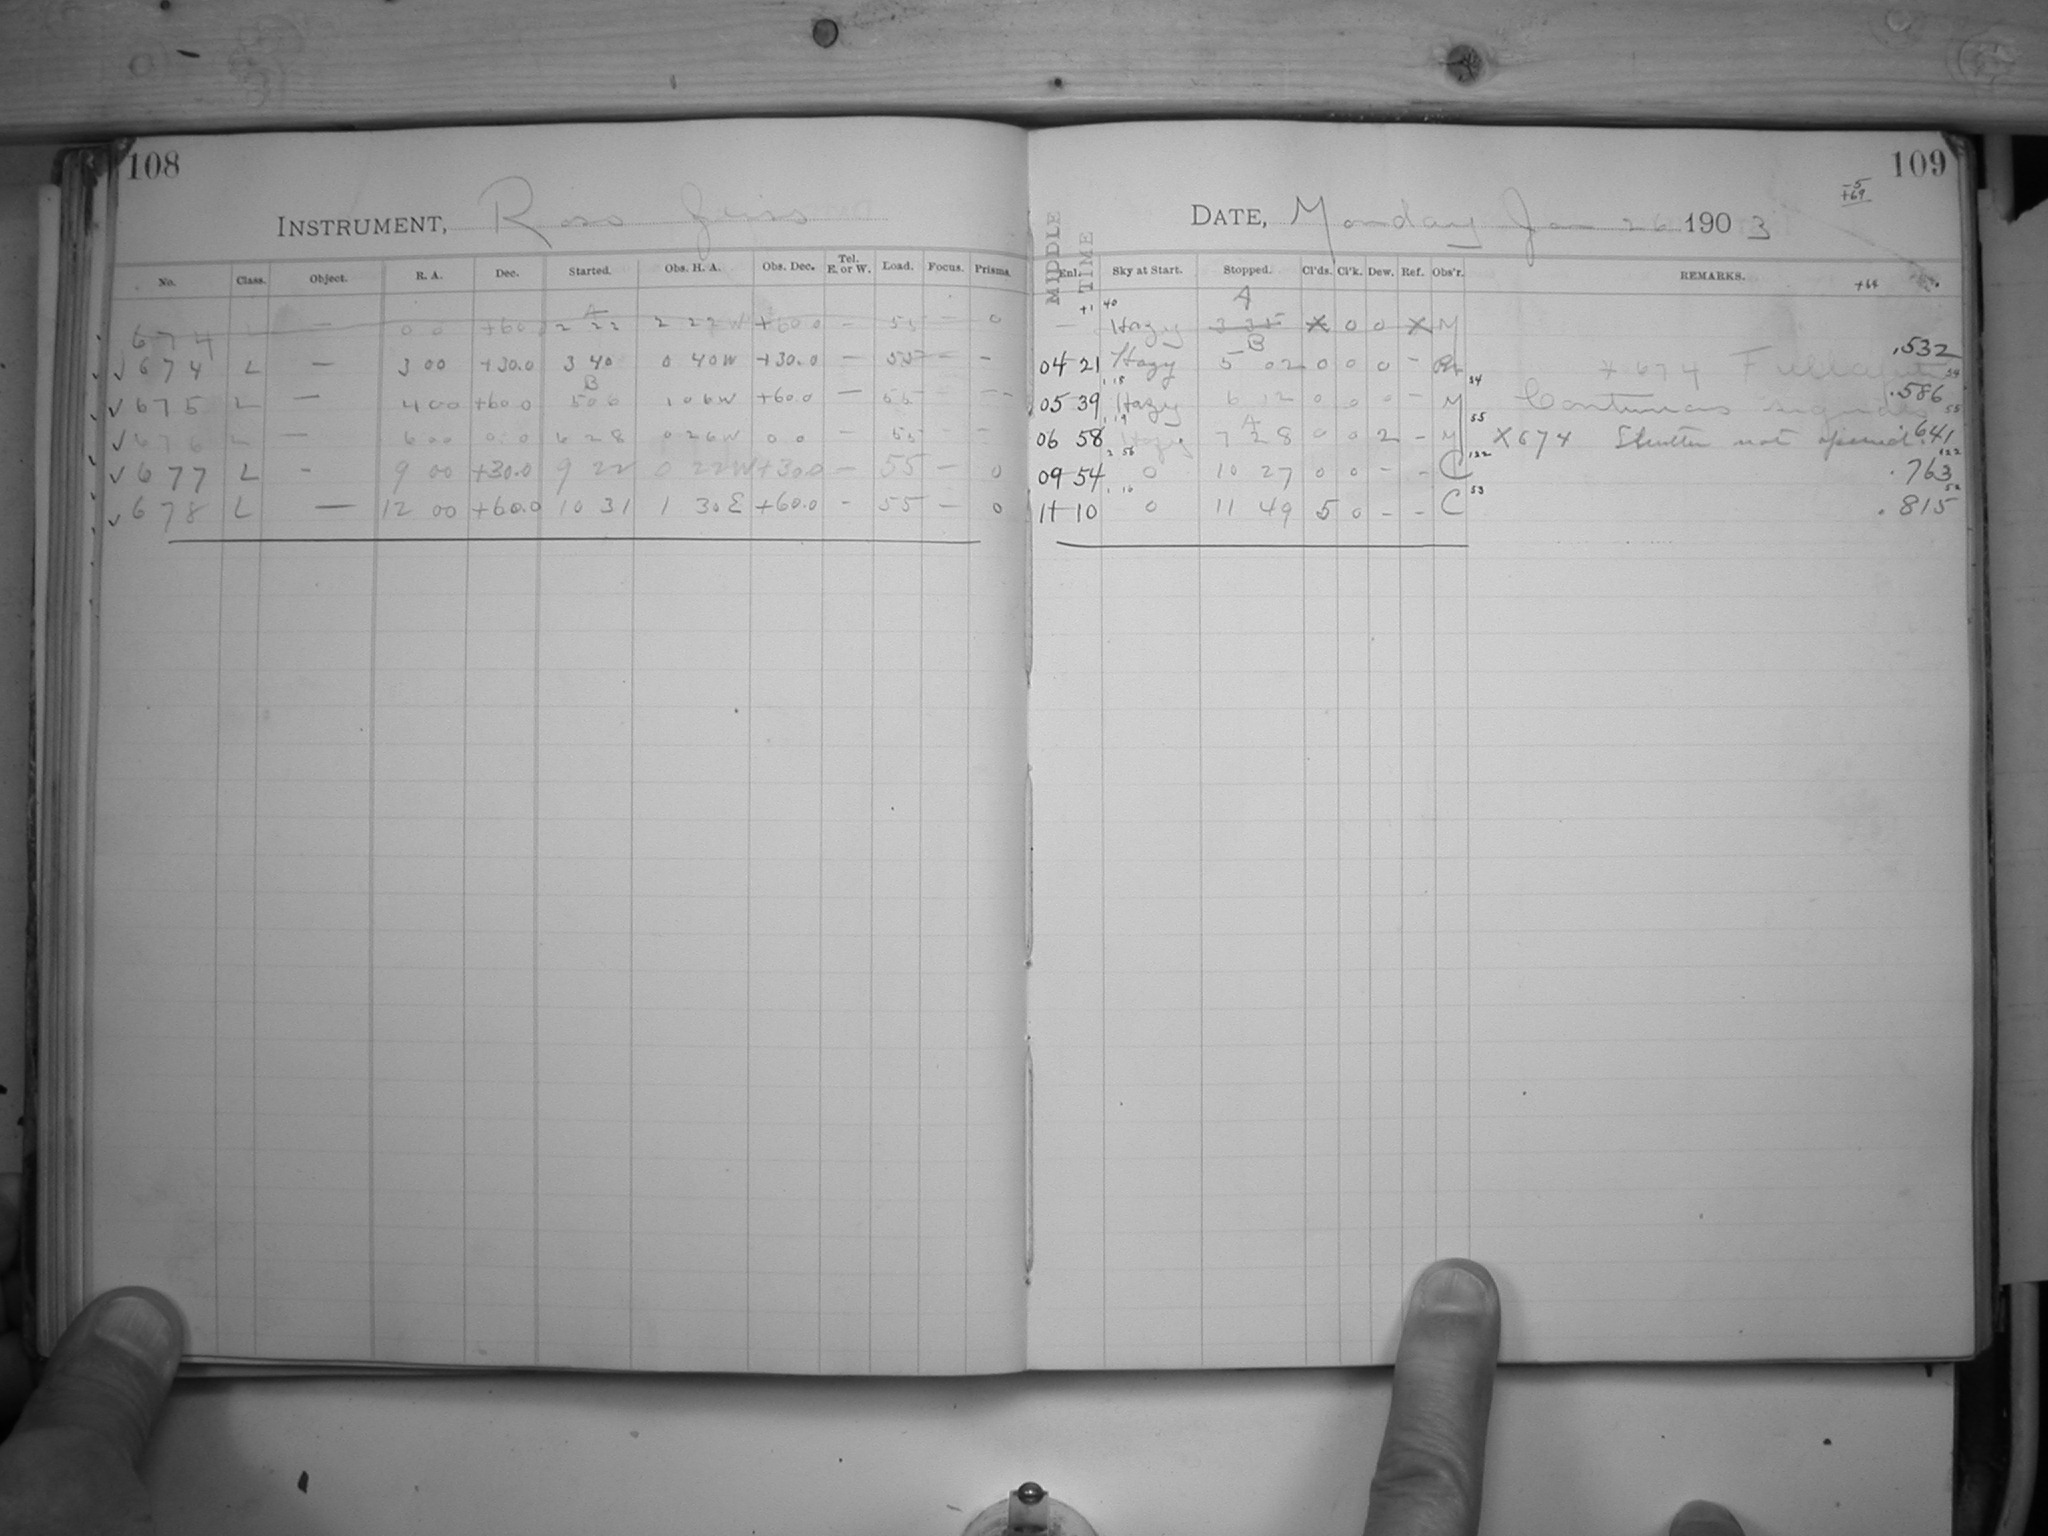 108
INSTRUMENT, Ross Zeiss
No. Class. Object. R. A. Dec. Started. Obs. H. A. Obs. Dec. Tel. E. or W. Load. Focus. Prisms.
674 L — 0 0 +60 A 2 22 2 22 W +60.0 — 55 — 0
✓ 674 L — 3 00 +30.0 3 40 0 40 W +30.0 — 55 — —
✓ 675 L — 4 00 +60.0 B 5 06 1 06 W +60.0 — 55 — —
✓ 676 L — 6 00 0.0 6 28 0 26 W 0.0 — 55 — —
✓ 677 L - 9 00 +30.0 9 22 0 22 W +30.0 — 55 — 0
✓ 678 L — 12 00 +60.0 10 31 1 30 E +60.0 - 55 — 0
109
-5
+69
DATE, Monday Jan 26 1903
MIDDLE TIME
Enl. Sky at Start. Stopped. Cl'ds. Cl'k. Dew. Ref. Obs'r. REMARKS.
+64
+1 40
— Hazy A 3 35 X 0 0 X M
04 21 Hazy B 5 02 0 0 0 - X 674 .532
1 18 54 54
05 39 Hazy 6 12 0 0 0 - M Continuous .586
1 19 55 55
06 58 Hazy A 7 28 0 0 2 - M X 674 Shutter not opened .641
2 56 122 122
09 54 0 10 27 0 0 - - C .763
1 16 53 52
11 10 0 11 49 5 0 - - C .815